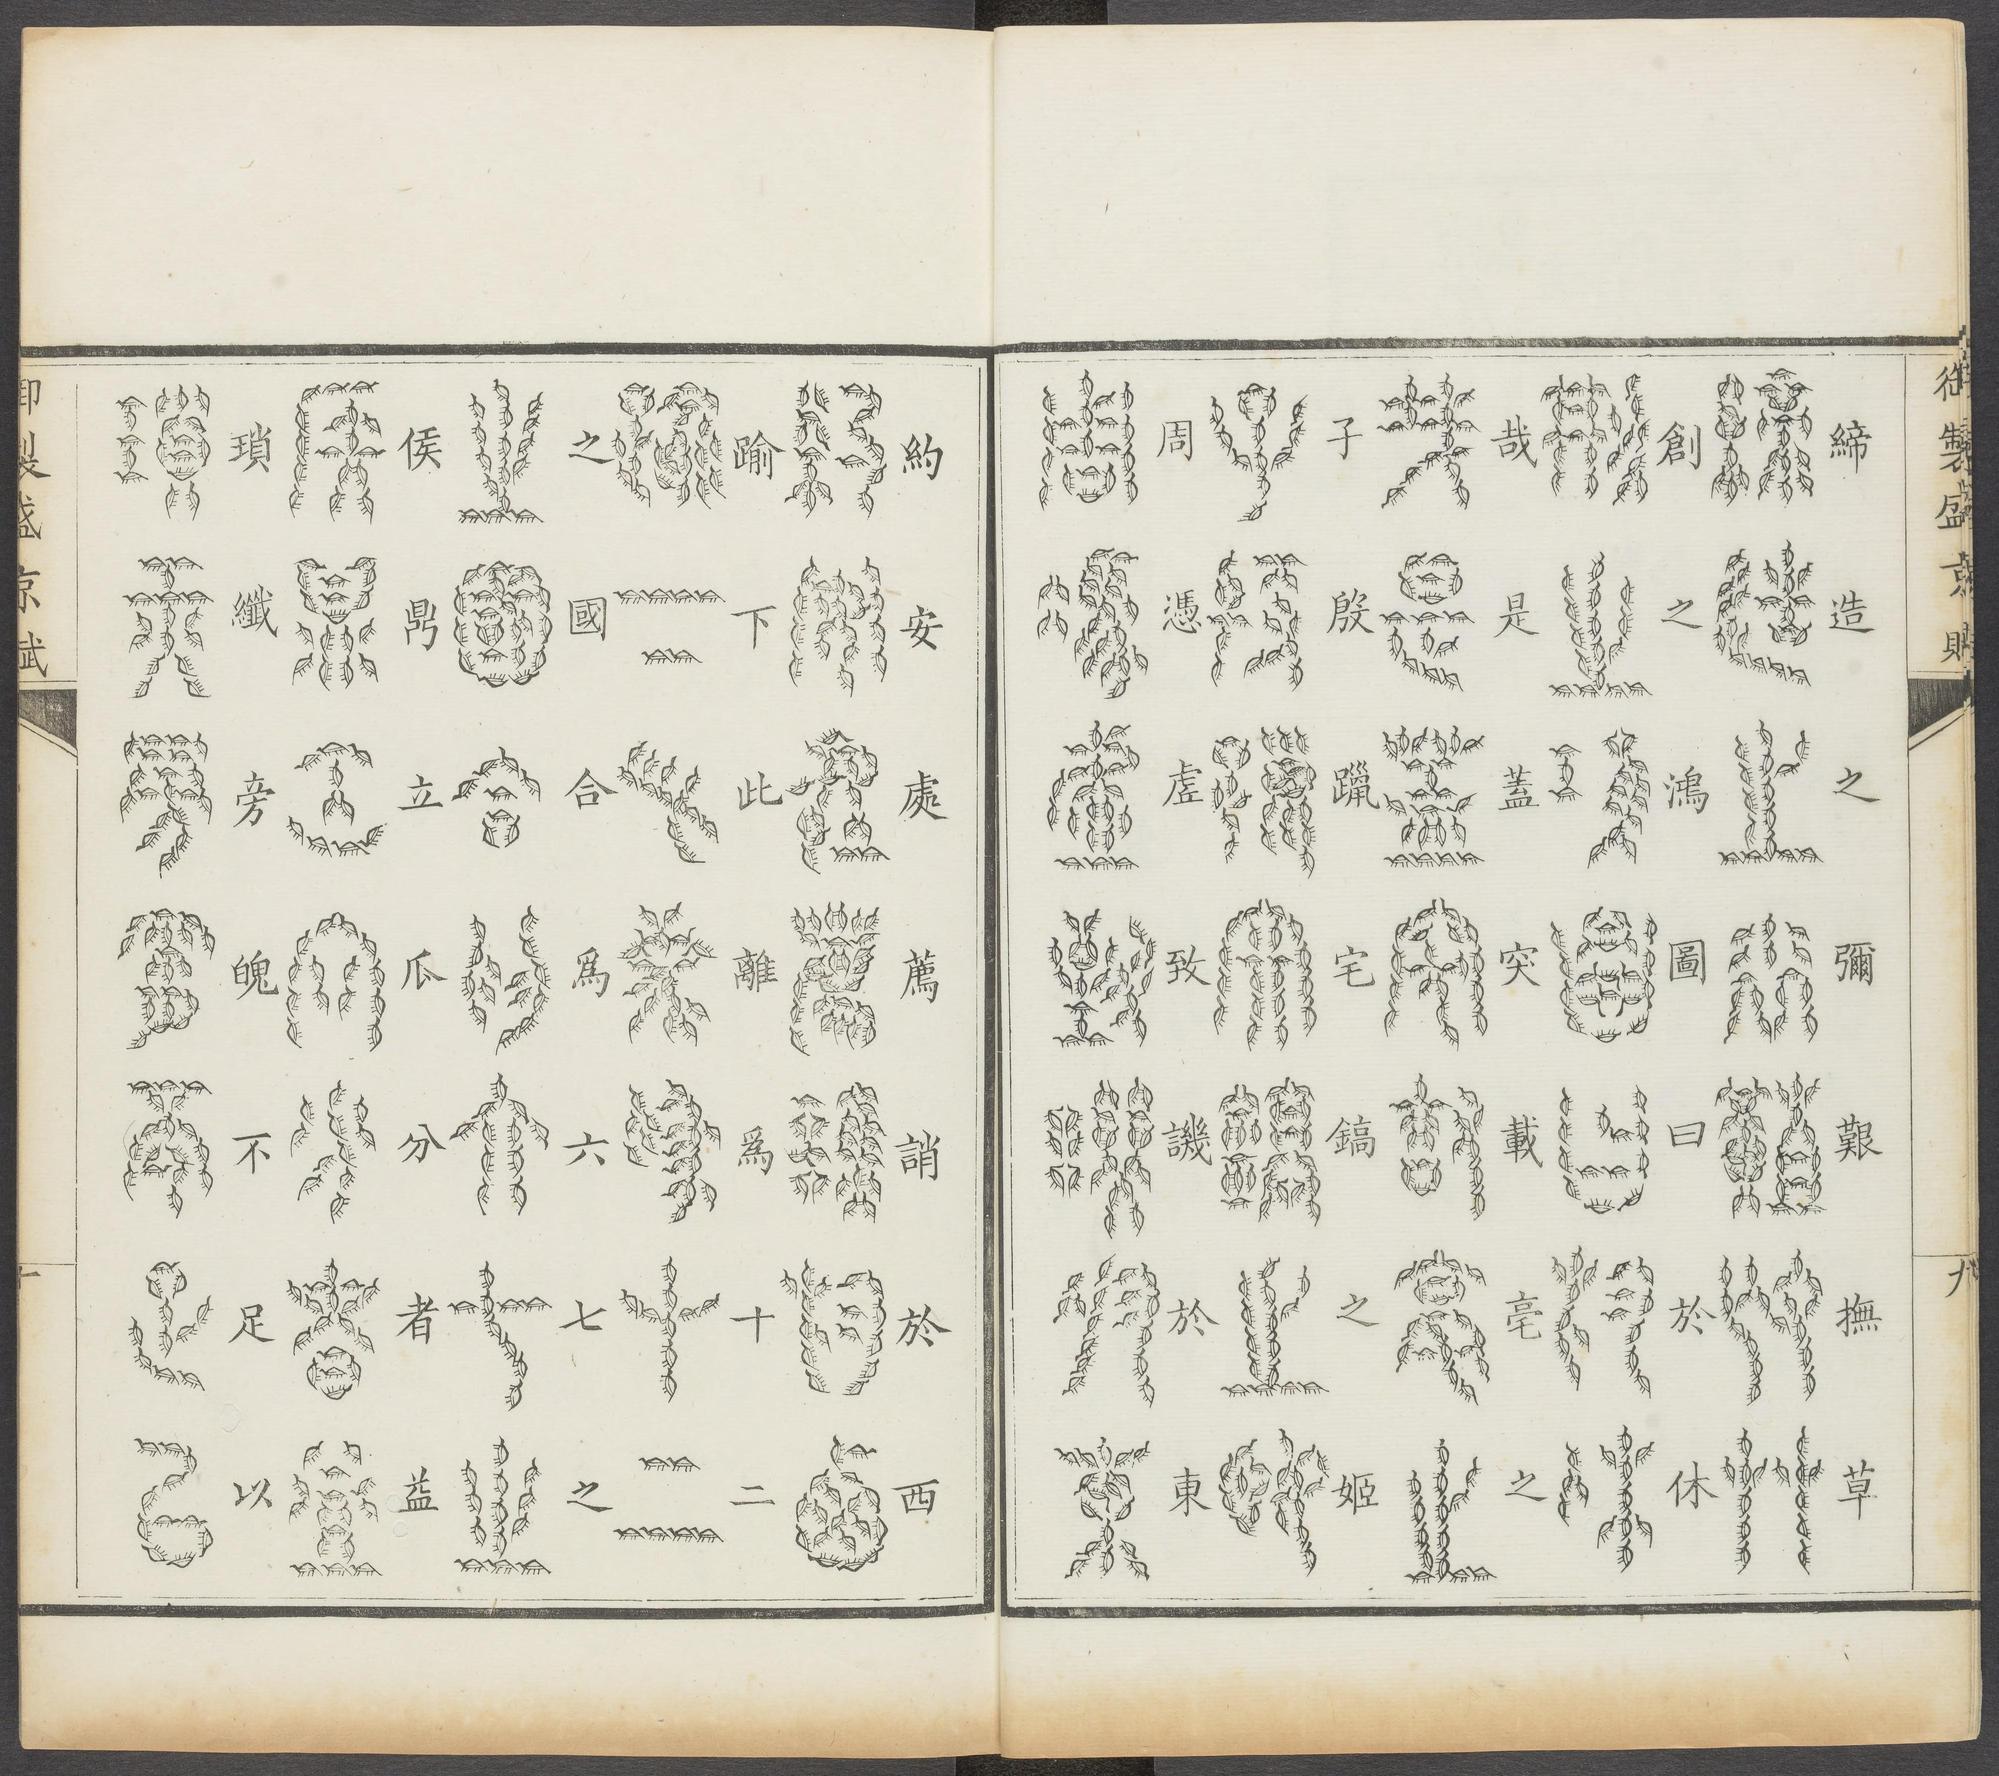 御製盛京賦
九
締造之彌艱撫草
創之鴻圖曰於休
哉是蓋突載亳之
子殷躐宅鎬之姬
周憑虗致譏於東
約安處薦誚於西
踰下此離為十二
之國合為六七之
侯鼎立瓜分者益
瑣纖旁魄不足以
御製盛京賦